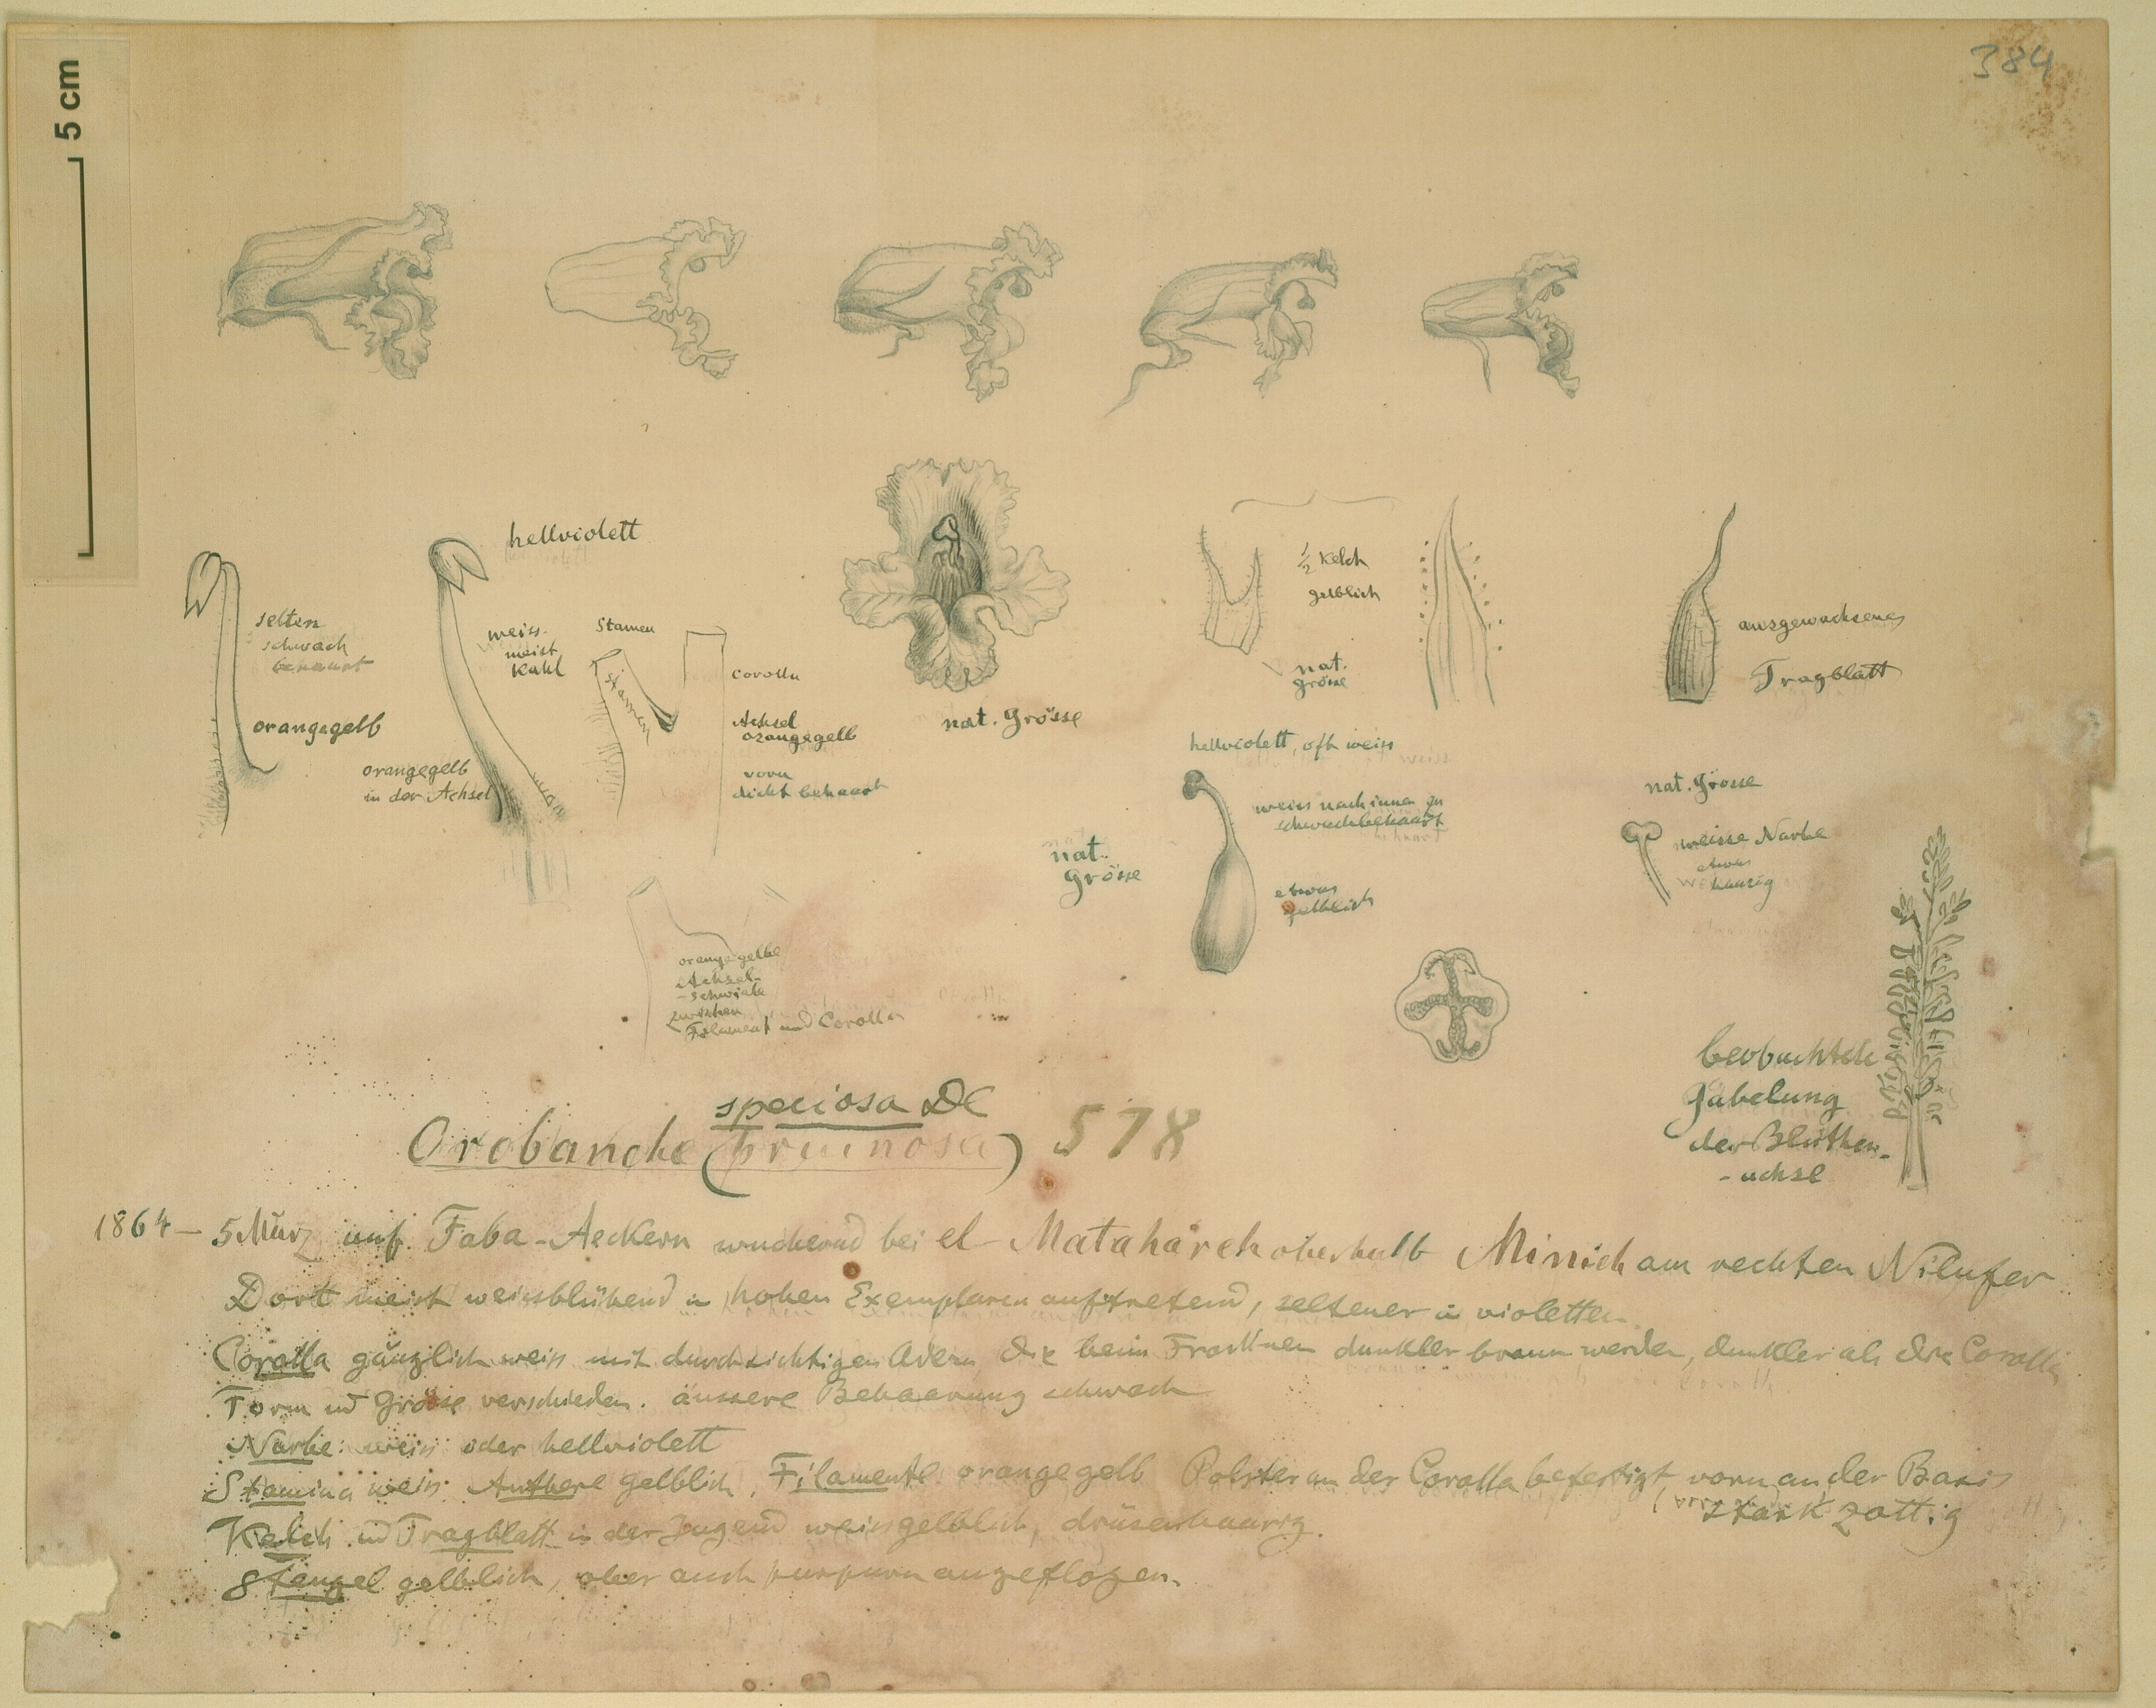 384
5 cm
hellviolett
selten
schwach
behaart
orangegelb
weiss
meist
kahl
orangegelb
in der Achsel
Stamen
Stamen
Corolla
Achsel
orangegelb
vorn
dicht behaart
nat. Grösse
½ Kelch
gelblich
nat.
grösse
ausgewachsenes
Tragblatt
hellviolett, oft weiss
weiss nach innen zu
schwach behaart
nat.
grösse
etwas
gelblich
nat. Grösse
weisse Narbe
etwas
haarig
orangegelbe
Achsel-
-schwiele
zwischen
Filament und Corolla
beobachtete
Gabelung
der Blüthen-
-achse
speciosa DC
Orobanche (pruinosa) 578
1864 – 5 März auf Faba-Aeckern wuchernd bei el Mataharch oberhalb Minieh am rechten Nilufer
Dort meist weissblühend in hohen Exemplaren auftretend, seltener in violetten
Corolla gänzlich weiss mit durchsichtigen Adern die beim Trocknen dunkler braun werden, dunkler als die Corolla
Form ud Grösse verschieden. äussere Behaarung schwach
Narbe: weiss oder hellviolett
Stamina weiss Anthere gelblich, Filamente orangegelb Polster an der Corolla befestigt, vorn an der Basis
stark zottig
Kelch ud Tragblatt in der Jugend weissgelblich, drüsenhaarig.
Stengel gelblich, aber auch purpurn angeflogen.